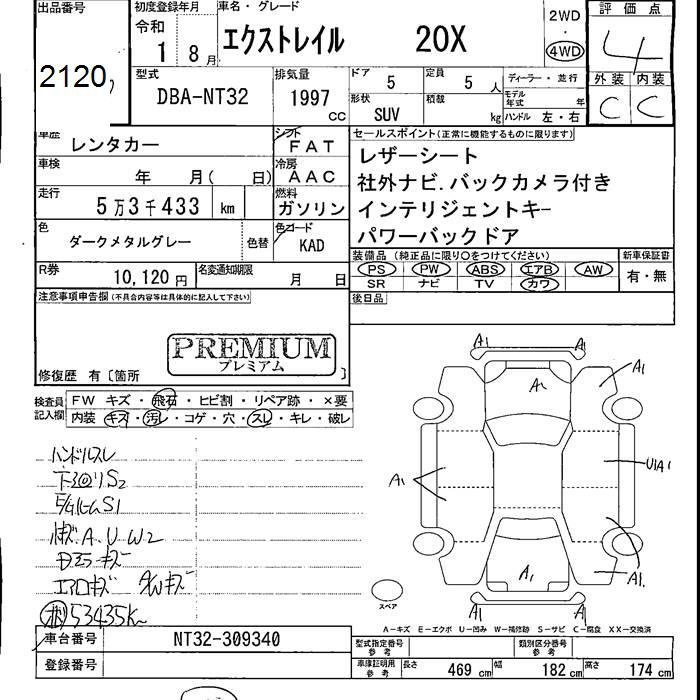 出品番号
2120
初度登録年月
令和
1 8月
車名・グレード
エクストレイル 20X
2WD
・
4WD
評価点
4
外装 内装
C C
型式
DBA-NT32
排気量
1997
cc
ドア
5
定員
5 人
形状
SUV
積載
kg
ディーラー・並行
モデル年式 年
ハンドル 左・右
車歴
レンタカー
シフト
FAT
車検
年 月( 日)
冷房
AAC
走行
5万3千433 km
燃料
ガソリン
色
ダークメタルグレー
色替
色コード
KAD
R券
10,120円
名変通知期限
月 日
セールスポイント(正常に機能するものに限ります)
レザーシート
社外ナビ.バックカメラ付き
インテリジェントキー
パワーバックドア
装備品(純正品に限り○をつけてください)
PS PW ABS エアB AW
SR ナビ TV カワ
新車保証書
有・無
後日品
注意事項申告欄(不具合内容等は具体的に記入して下さい)
PREMIUM
プレミアム
修復歴 有〔箇所 〕
検査員記入欄
FW キズ・飛石・ヒビ割・リペア跡・×要
内装 キズ・汚レ・コゲ・穴・スレ・キレ・破レ
ハンドルスレ
S2
S1
A U W2
キズ
エアロキズ AWキズ
53435K
A1 A1
A1
A1
A1
U1A1
A1
A1
A1 A1
スペア
A-キズ E-エクボ U-凹み W-補修跡 S-サビ C-腐食 XX-交換済
車台番号
NT32-309340
登録番号
型式指定番号
参考
類別区分番号
参考
車庫証明用
参考
長さ 469 cm 幅 182 cm 高さ 174 cm